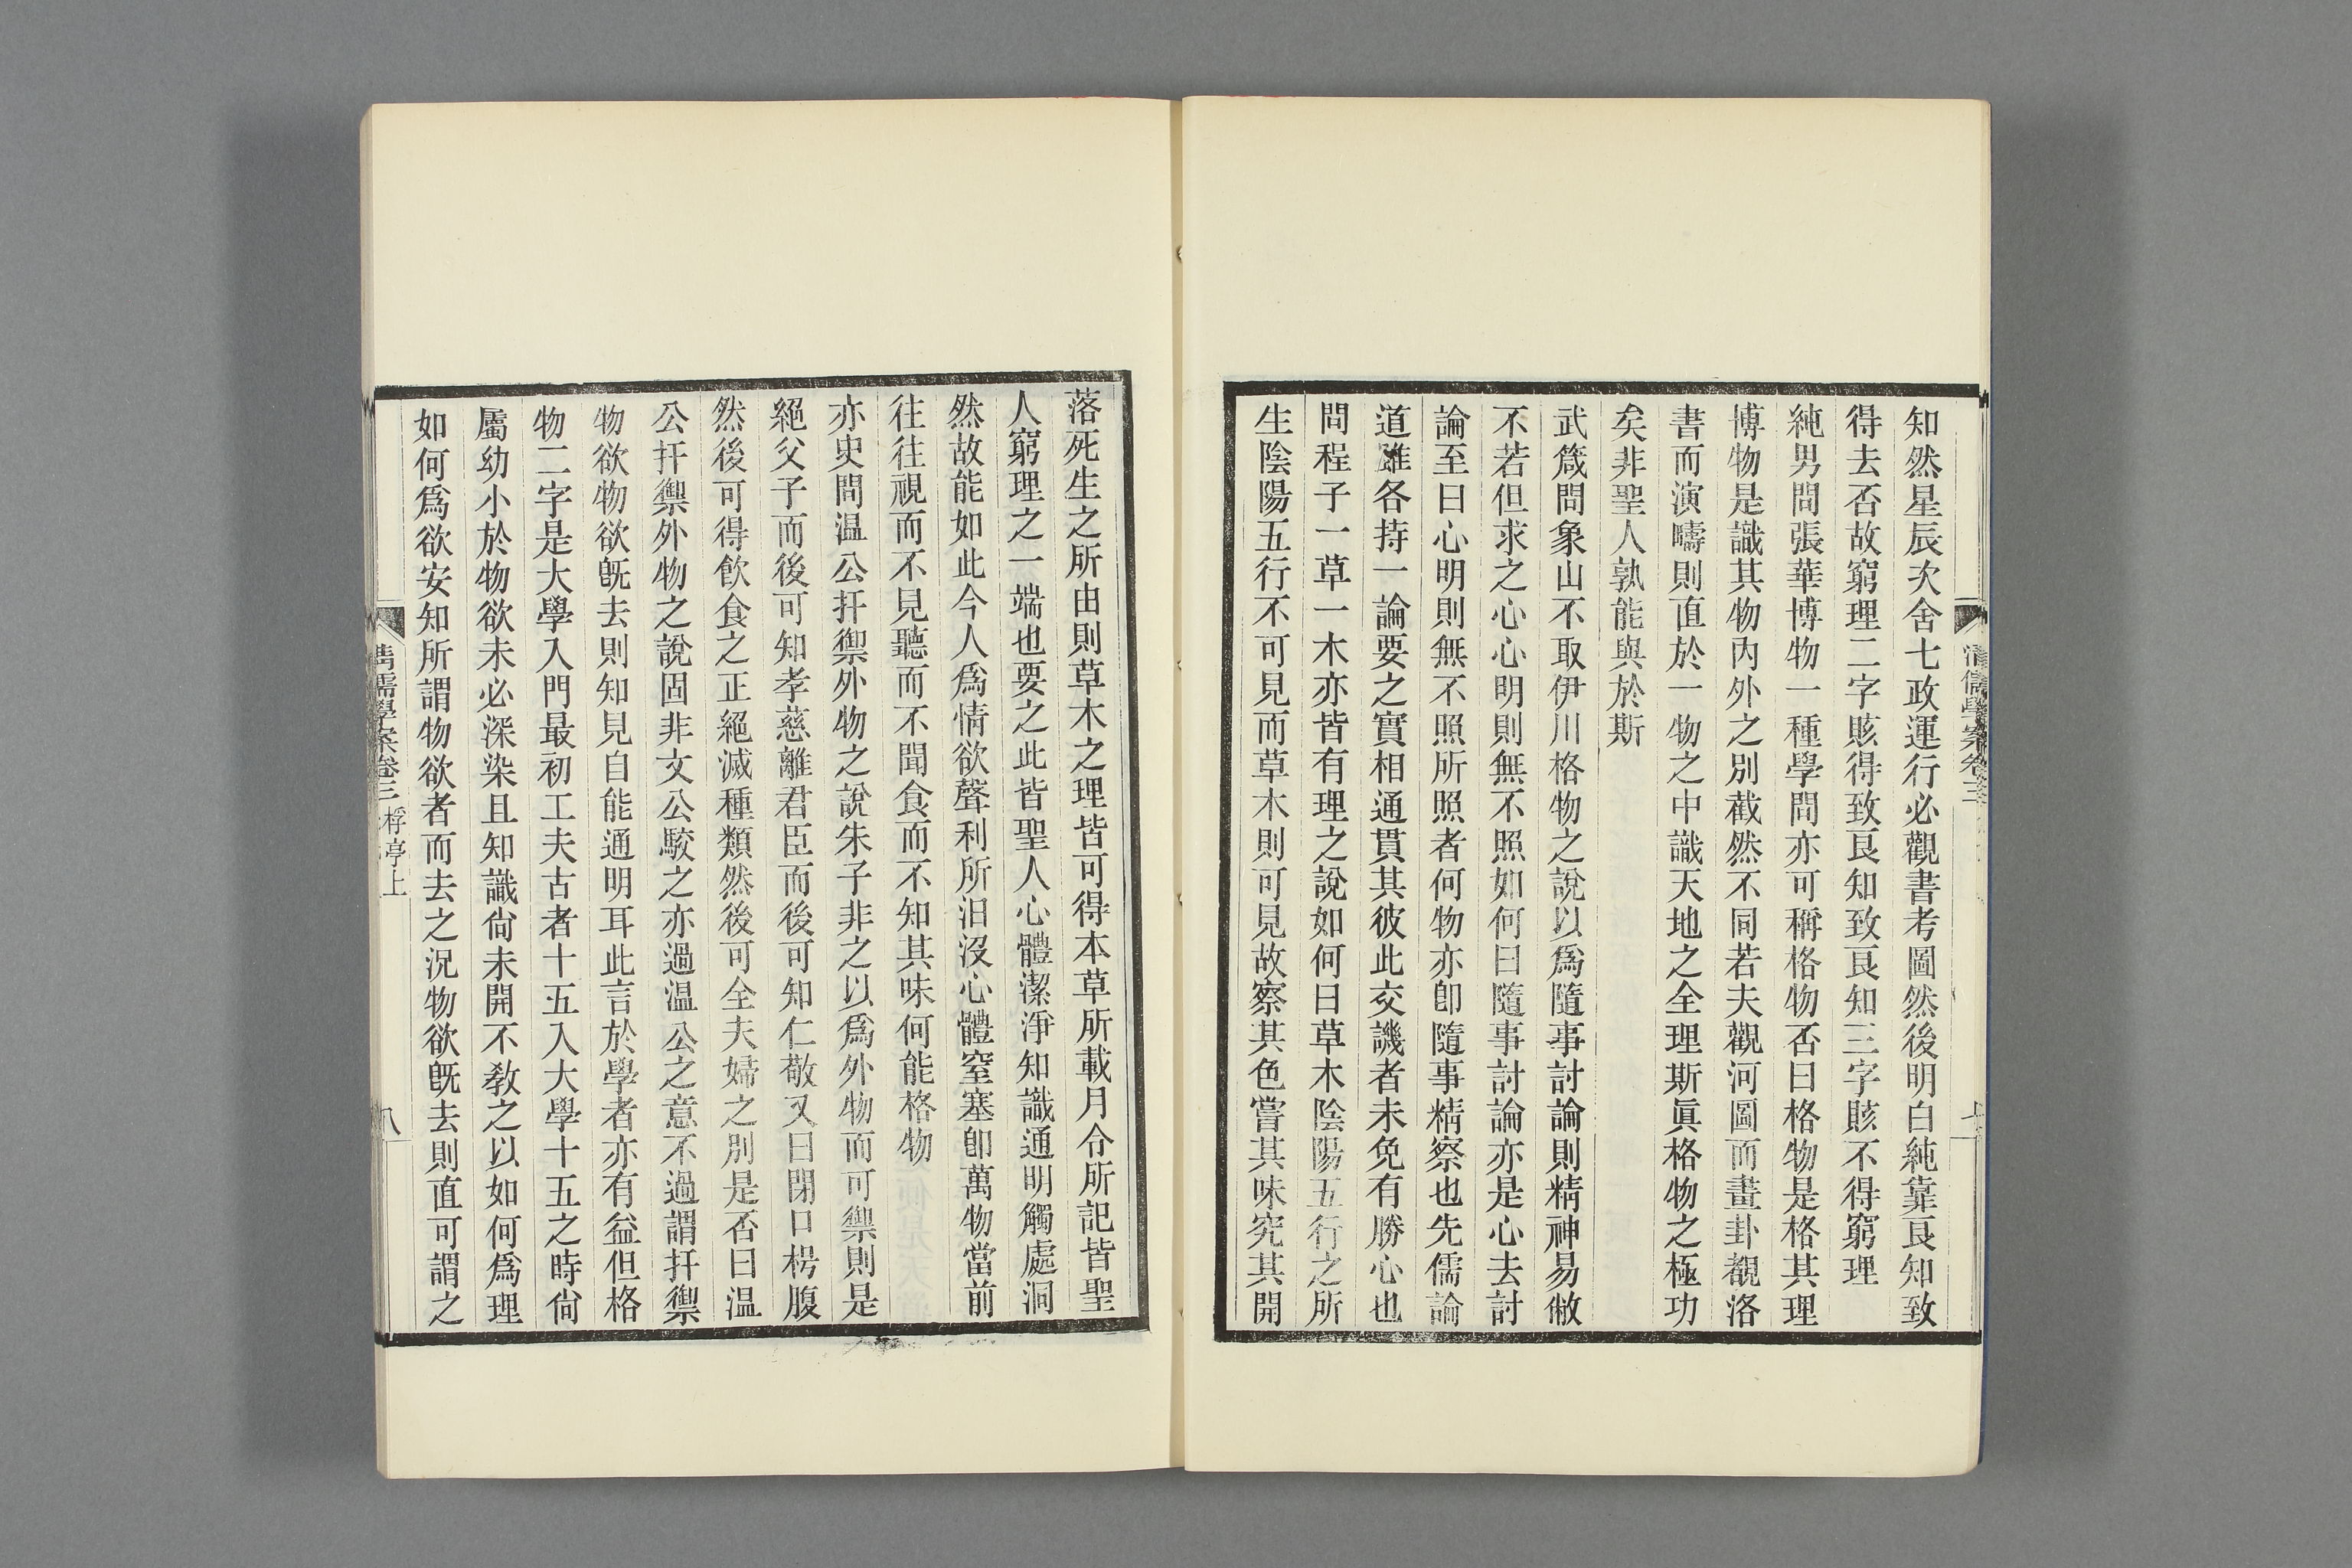 清儒學案卷三
七
知然星辰次舍七政運行必觀書考圖然後明白純靠良知致
得去否故窮理二字賅得致良知致良知三字賅不得窮理
純男問張華博物一種學問亦可稱格物否曰格物是格其理
博物是識其物內外之別截然不同若夫觀河圖而畫卦覩洛
書而演疇則直於一物之中識天地之全理斯眞格物之極功
矣非聖人孰能與於斯
武箴問象山不取伊川格物之說以爲隨事討論則精神易敝
不若但求之心心明則無不照如何曰隨事討論亦是心去討
論至曰心明則無不照所照者何物亦卽隨事精察也先儒論
道雖各持一論要之實相通貫其彼此交譏者未免有勝心也
問程子一草一木亦皆有理之說如何曰草木陰陽五行之所
生陰陽五行不可見而草木則可見故察其色嘗其味究其開
落死生之所由則草木之理皆可得本草所載月令所記皆聖
人窮理之一端也要之此皆聖人心體潔淨知識通明觸處洞
然故能如此今人爲情欲聲利所汨沒心體窒塞卽萬物當前
往往視而不見聽而不聞食而不知其味何能格物
亦史問温公扞禦外物之說朱子非之以爲外物而可禦則是
絕父子而後可知孝慈離君臣而後可知仁敬又曰閉口枵腹
然後可得飮食之正絕滅種類然後可全夫婦之別是否曰温
公扞禦外物之說固非文公駮之亦過温公之意不過謂扞禦
物欲物欲旣去則知見自能通明耳此言於學者亦有益但格
物二字是大學入門最初工夫古者十五入大學十五之時尙
屬幼小於物欲未必深染且知識尙未開不敎之以如何爲理
如何爲欲安知所謂物欲者而去之況物欲旣去則直可謂之
清儒學案卷三 桴亭上
八